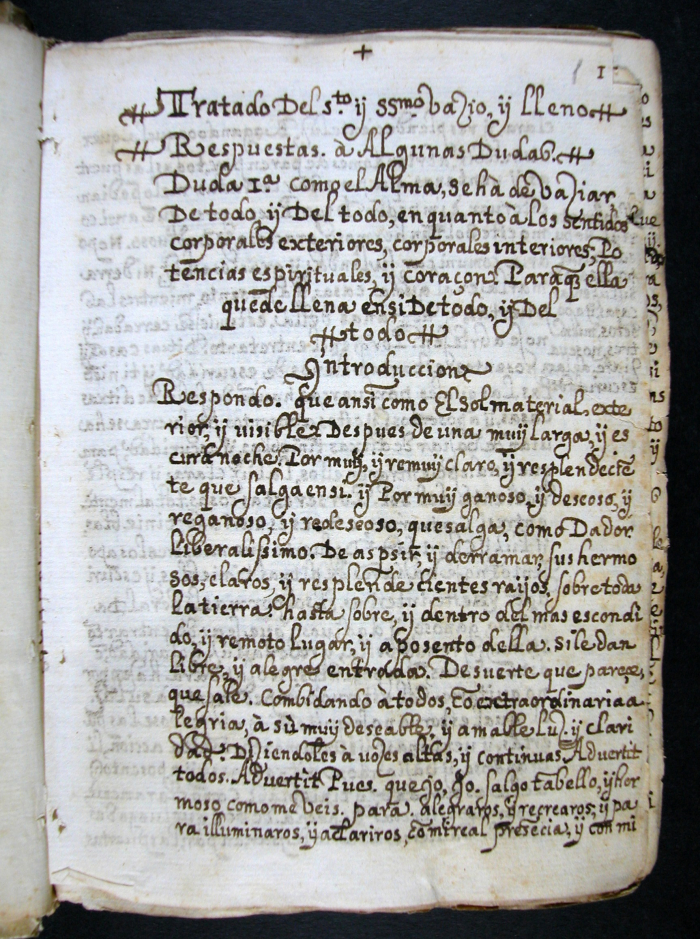 +
1
Tratado Del s.to ÿ SSmo vazio, ÿ lleno
Respuestas. à Algunas Dudas.
Duda 1a como el Alma, se hà de vaziar
De todo, ÿ Del todo, en quanto à los sentidos
corporales exteriores, corporales interiores, Po
tencias espirituales, ÿ coraçon? Paraq ella
quede llena ensi De todo, ÿ Del
todo
Introduccion
Respondo. que ansi como El sol material, exte
rior, ÿ visible? Despues de una muÿ larga, ÿ es
cura noche? Por muÿ, ÿ remuÿ claro, ÿ resplendecie
te que salga ensi. ÿ Por muÿ ganoso, ÿ deseoso, ÿ
reganoso, ÿ redeseoso, que salga, como Dador
Liberalissimo. De aspsir, ÿ derramar, sus hermo
sos, claros, ÿ resplende cientes raijos, sobre toda
la tierra? hasta sobre, ÿ dentro del mas escondi
do, ÿ remoto Lugar, ÿ aposento della. si le dan
libre, ÿ alegre entrada. De suerte que parece,
que sale. Combidando à todos, co extraordinaria a
legria, à sù muÿ deseable, ÿ amable luz, ÿ clari
dad? Diziendoles à vozes altas, ÿ continuas. Advertit
todos. Advertit Pues. que jo, jo. salgo ta bello, ÿ her
moso como me Veis. para alegraros, ÿ recrearos, ÿ pa
ra illuminaros, ÿ aclariros, co mi real presecia, ÿ con mi